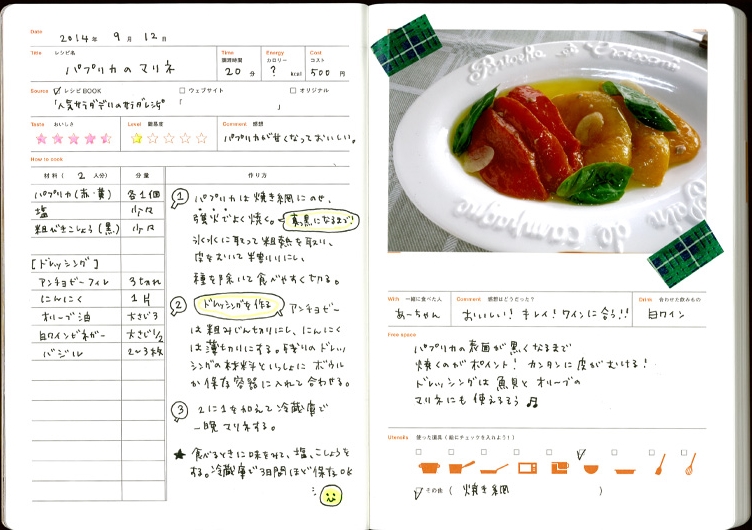 Date 2014年 9月 12日
Title レシピ名 パプリカのマリネ
Time 調理時間 20分
Energy カロリー ? kcal
Cost コスト 500円
Source レシピBOOK ウェブサイト オリジナル
「人気サラダデリのサラダレシピ」「 」
Taste おいしさ
Level 難易度
Comment 感想 パプリカが甘くなっておいしい。
How to cook
材料(2人分) 分量
パプリカ(赤・黄) 各1個
塩 少々
粗びきこしょう(黒) 少々
[ドレッシング]
アンチョビーフィレ 3切れ
にんにく 1片
オリーブ油 大さじ3
白ワインビネガー 大さじ1/2
バジル 2〜3枚
作り方
1 パプリカは焼き網にのせ、
強火でよく焼く。真っ黒になるまで!
氷水に取って粗熱を取り、
皮をむいて半割りにし、
種を除いて食べやすく切る。
2 ドレッシングを作る アンチョビー
は粗みじん切りにし、にんにく
は薄切りにする。残りのドレッ
シングの材料といっしょにボウル
か保存容器に入れて合わせる。
3 2に1を加えて冷蔵庫で
一晩マリネする。
★食べるときに味をみて、塩、こしょうを
する。冷蔵庫で3日間ほど保存OK
With 一緒に食べた人 あーちゃん
Comment 感想はどうだった? おいしい! キレイ! ワインに合う!!
Drink 合わせた飲みもの 白ワイン
Free space
パプリカの表面が黒くなるまで
焼くのがポイント! カンタンに皮がむける!
ドレッシングは魚貝とオリーブの
マリネにも使えそう♫
Utensils 使った道具(絵にチェックを入れよう!)
その他( 焼き網 )